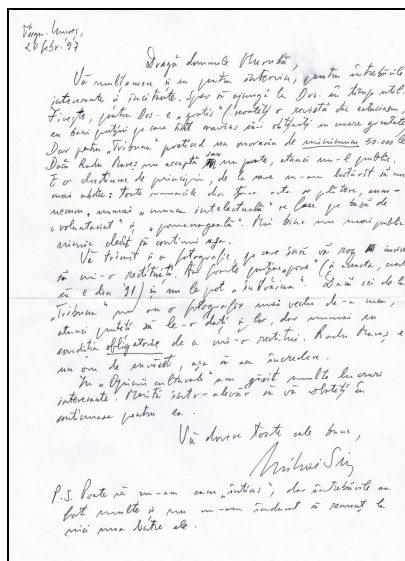 Târgu-Mureș,
20 febr. 97
Dragă domnule
Vă mulțumesc și eu pentru interviu, pentru întrebările
interesante și incitante. Sper să ajungă la Dvs. în timp util.
Firește, pentru Dvs. e „gratis” revistă de
în bani puțini pe care
Dar pentru „Tribuna” pretind un onorariu de minimum 50.000 lei
Dacă Radu Mareș nu acceptă sau nu poate, atunci nu-l public.
E o chestiune de principiu, de la care m-am hotărât să nu
mai abdic: toate muncile din țara asta se plătesc,
numai „munca intelectuală” se face pe bază de
„voluntariat” și Mai bine nu mai public
nimic decât să continui așa.
Vă trimit și o fotografie, pe care însă vă rog
să mi-o restituiți. Am foarte puține (și aceasta, cred
că e din '91) și nu le pot Dacă cei de la
„Tribuna” nu au o fotografie mai veche de-a mea,
atunci puteți să le-o dați și lor, dar numai cu
condiția obligatorie de a mi-o restitui. Radu Mareș e
un om de așa că am încredere.
În „Opinia culturală” am găsit multe lucruri
interesante. Merită într-adevăr să vă
continuare pentru ea.
Vă doresc toate cele bune,
Mihai Sin
P.S. Poate că m-am cam „întins”, dar întrebările au
fost multe și nu m-am îndurat să renunț la
nici una dintre ele.